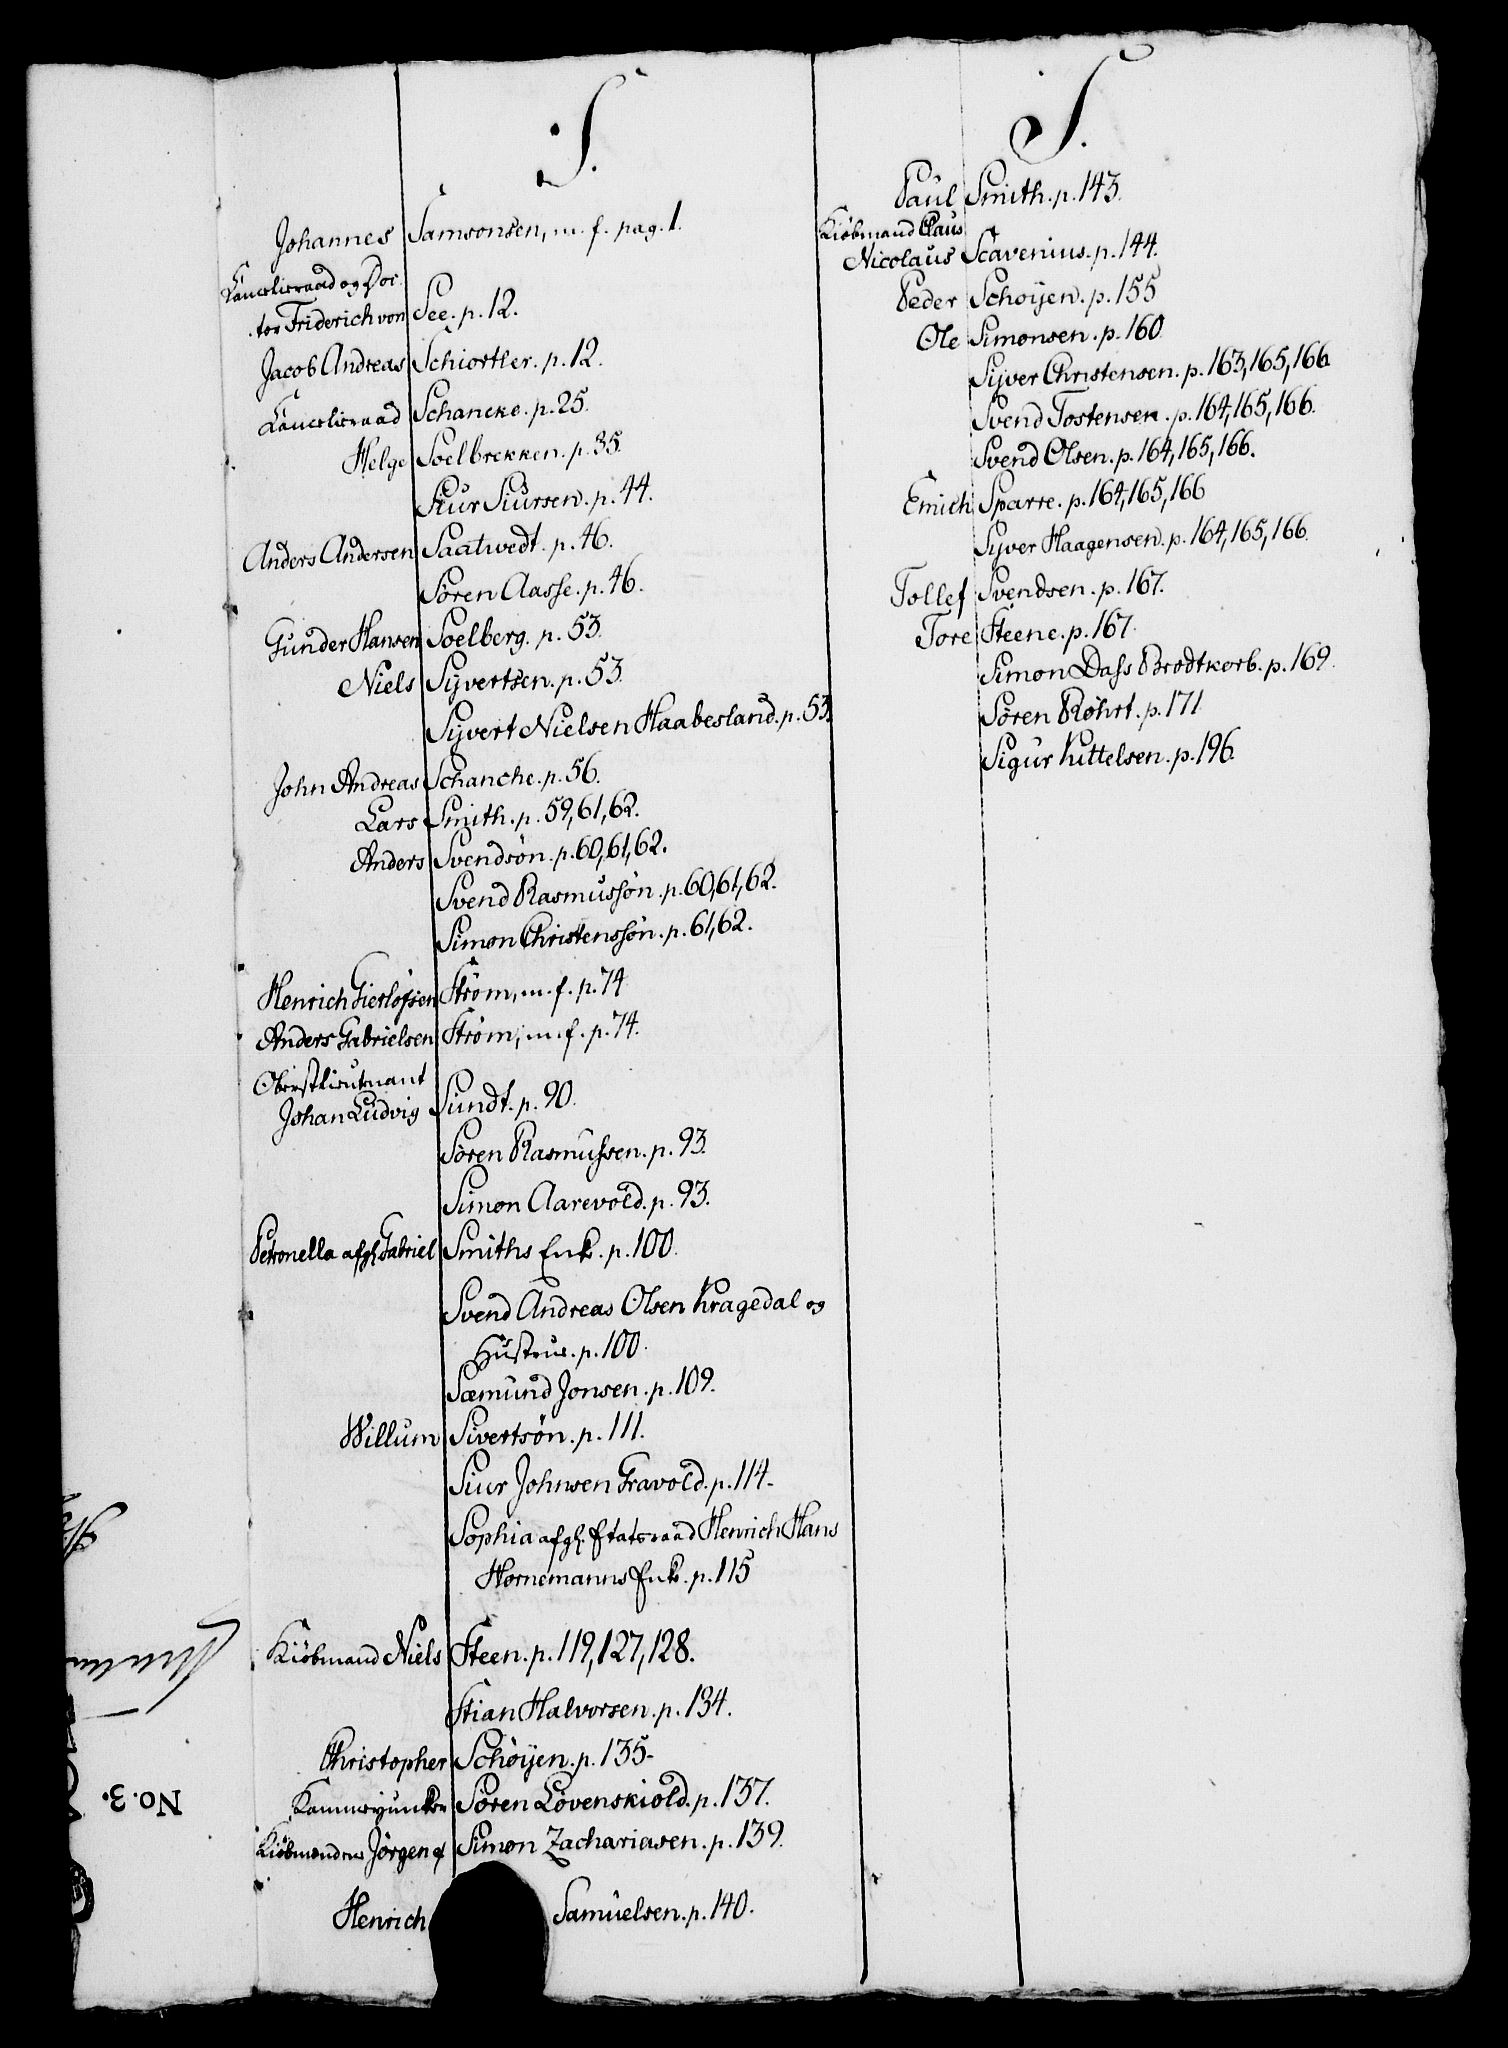 S.
Johannes Samsonsen, m. f. pag. 1.
Cancelieraad og Doc-
tor Friderich von See. p. 12.
Jacob Andreas Schiortler. p. 12.
Cancelieraad Schancke. p. 25.
Helge Soelbrekken. p. 35.
Siur Siursen. p. 44.
Anders Andersen Saatvedt. p. 46.
Søren Aasse. p. 46.
Gunder Hansen Soelberg. p. 53.
Niels Sÿvertsen. p. 53.
Sÿvert Nielsen Haabesland. p. 53.
John Andreas Schanche. p. 56.
Lars Smith. p. 59, 61, 62.
Anders Svendsøn. p. 60, 61, 62.
Svend Rasmussøn. p. 60, 61, 62.
Simon Christenssøn. p. 61, 62.
Henrich Gierløfsen Strøm, m. f. p. 74
Anders Gabrielsen Strøm, m. f. p. 74.
Oberstlieutnant
Johan Ludvig Sundt. p. 90.
Søren Rasmussen. p. 93.
Simon Aarevold. p. 93.
Petronella afgl. Gabriel Smiths Enke. p. 100.
Svend Andreas Olsen Kragedal og
Hustrue. p. 100.
Sæmund Jonsen. p. 109.
Willum Sivertsøn. p. 111.
Siur Johnsen Gravold. p. 114.
Sophia afgl. Etatsraad Henrich Hans
Hornemanns Enke. p. 115
Kiøbmand Niels Steen. p. 119, 127, 128.
Stian Halvorsen. p. 134.
Christopher Schøÿen. p. 135.
Kammerjunker Søren Løvenskiold. p. 137.
Kiøbmændene Jørgen og Simon Zachariasen. p. 139.
Henrich Samuelsen. p. 140.
S.
Paul Smith. p. 143.
Kiøbmand Claus
Nicolaus Scavenius. p. 144.
Peder Schøÿen. p. 155
Ole Simonsen. p. 160.
Sÿver Christensen. p. 163, 165, 166.
Svend Tostensen. p. 164, 165, 166.
Svend Olsen. p. 164, 165, 166.
Emich Sparre. p. 164, 165, 166
Sÿver Haagensen. p. 164, 165, 166.
Tollef Svendsen. p. 167.
Tore Steene. p. 167.
Simon Dass Brodtkorb. p. 169.
Søren Røhrt. p. 171
Sigur Kittelsen. p. 196.
No. 3.